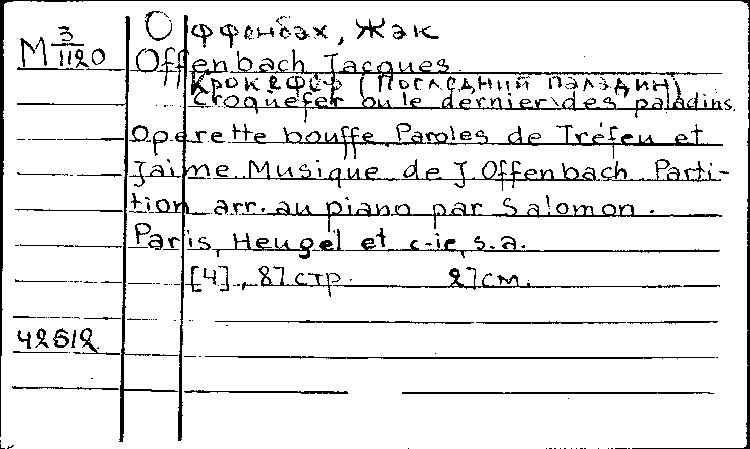 Оффенбах, Жак
M 3/1120
Offenbach Jacques
Крокефер (Последний паладин)
Croquefer ou le dernier des paladins.
Operette bouffe. Paroles de Tréfeu et
Jaime. Musique de J. Offenbach. Parti-
tion arr. au piano par Salomon.
Paris, Heugel et c-ie, s.a.
[4], 87 стр. 27 см.
42512